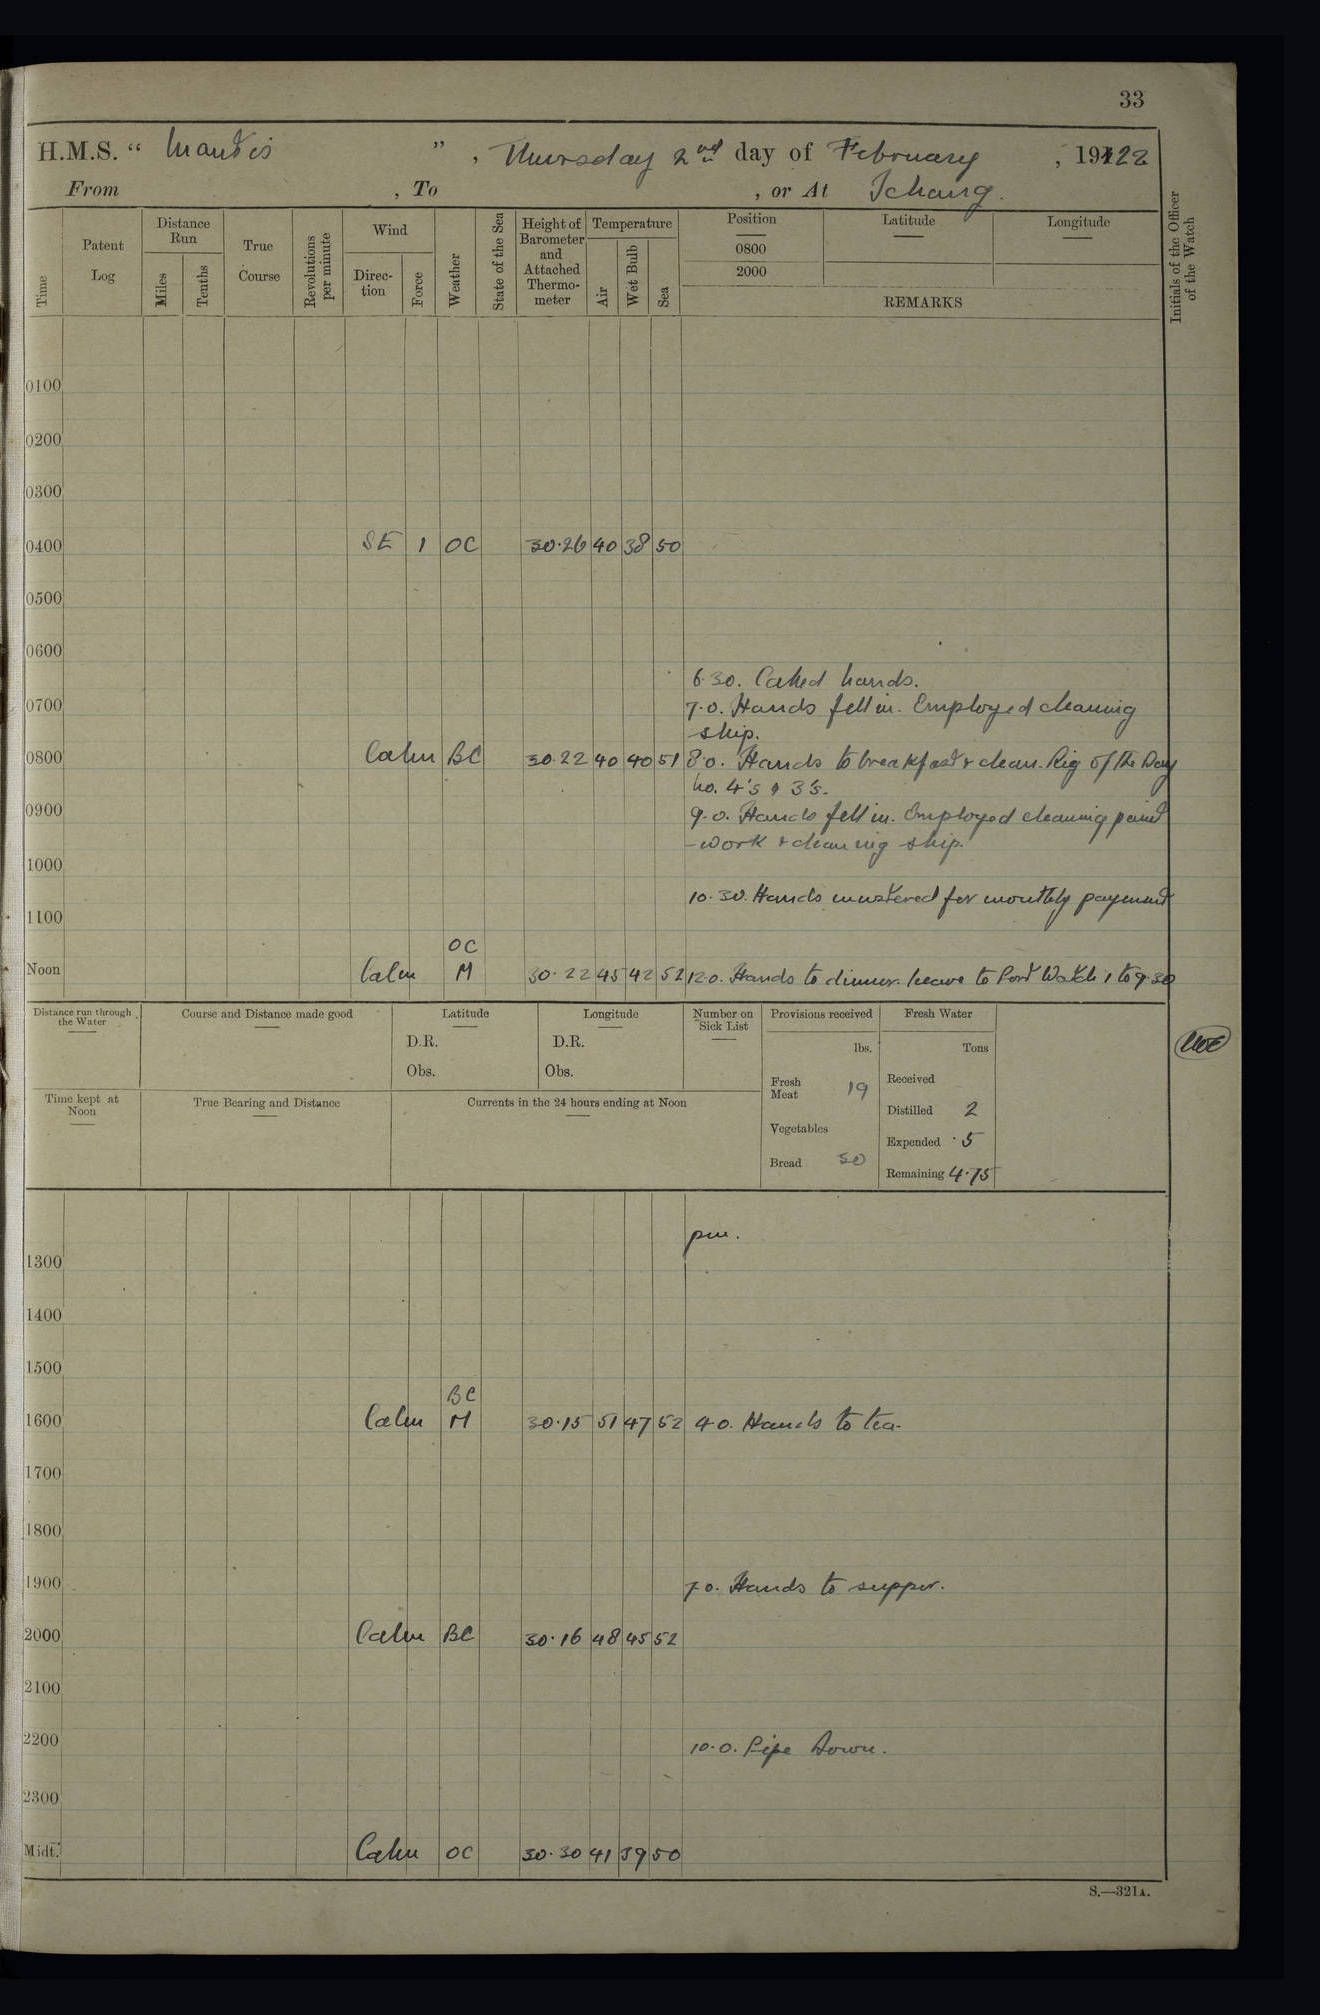 33
H.M.S. “ Mantis ” , Thursday 2nd day of February , 19122
From , To , or At Ichang.
Time
Patent Log
Distance Run
Miles
Tenths
True Course
Revolutions per minute
Wind
Direc-tion
Force
Weather
State of the Sea
Height of Barometer and Attached Thermo-meter
Temperature
Air
Wet Bulb
Sea
Position
0800
2000
Latitude
Longitude
REMARKS
Initials of the Officer of the Watch
0100
0200
0300
0400 SE 1 OC 30.26 40 38 50
0500
0600
6.30. Called hands.
0700 7.0. Hands fell in. Employed cleaning
ship.
0800 Calm BC 30.22 40 40 51 8.0. Hands to breakfast & clean. Rig of the Day
No. 4's & 3's.
0900 9.0. Hands fell in. Employed cleaning paint
-work & cleaning ship.
1000
10.30. Hands mustered for monthly payment
1100
OC
Noon Calm M 30.22 45 42 52 12.0. Hands to dinner. Leave to Port Watch 1 to 9.30
Distance run through the Water
Course and Distance made good
Latitude
D.R.
Obs.
Longitude
D.R.
Obs.
Number on Sick List
Provisions received
lbs.
Fresh Meat 19
Vegetables
Bread 50
Fresh Water
Tons
Received
Distilled 2
Expended .5
Remaining 4.75
Time kept at Noon
True Bearing and Distance
Currents in the 24 hours ending at Noon
pm.
1300
1400
1500
BC
1600 Calm M 30.15 51 47 52 4.0. Hands to tea.
1700
1800
1900 7.0. Hands to supper.
2000 Calm BC 30.16 48 45 52
2100
2200 10.0. Pipe Down.
2300
Midt. Calm OC 30.30 41 39 50
S.—321A.